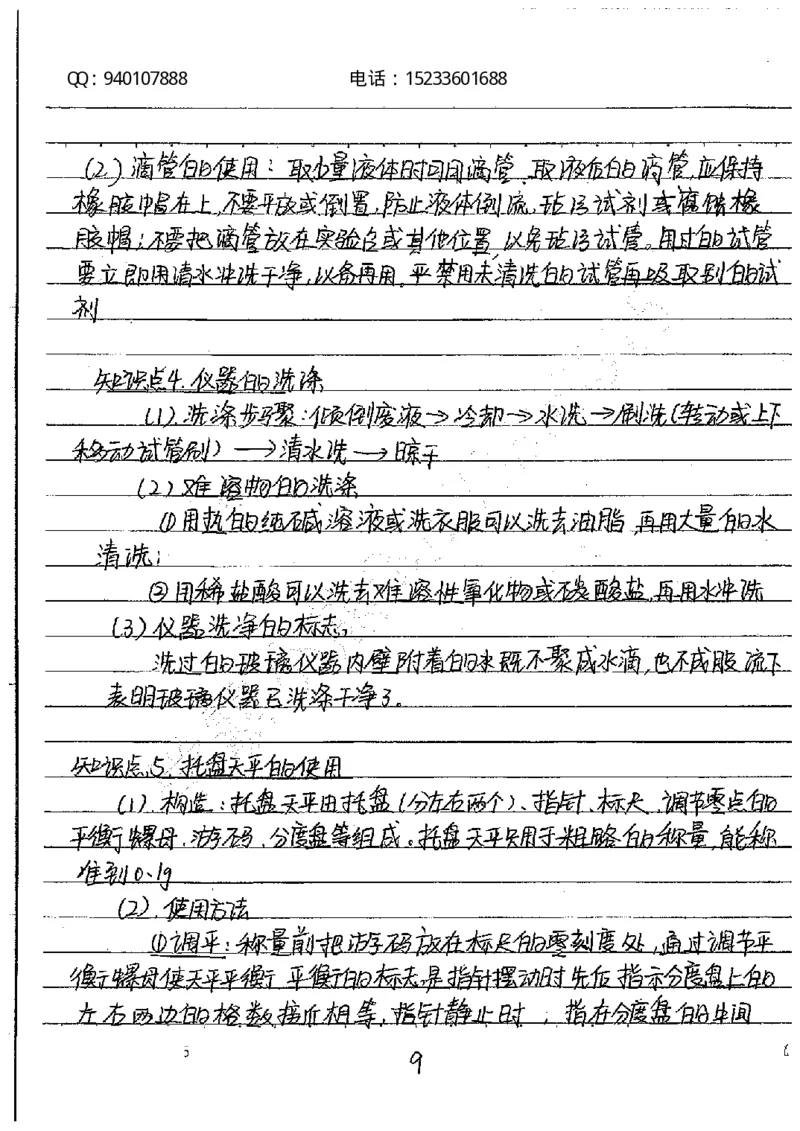 QQ：940107888 电话：15233601688
(2) 滴管的使用：取少量液体时可用滴管．取液后的滴管,应保持
橡胶帽在上,不要平放或倒置,防止液体倒流,玷污试剂或腐蚀橡
胶帽；不要把滴管放在实验台或其他位置,以免玷污试管。用过的试管
要立即用清水冲洗干净,以备再用．严禁用未清洗的试管再吸取别的试
剂
知识点4．仪器的洗涤
(1)．洗涤步骤：倾倒废液→冷却→水洗→刷洗(转动或上下
移动试管刷)→清水洗→晾干
(2) 难溶物的洗涤
①用热的纯碱溶液或洗衣服可以洗去油脂 再用大量的水
清洗；
②用稀盐酸可以洗去难溶性氧化物或碳酸盐,再用水冲洗
(3) 仪器洗净的标志。
洗过的玻璃仪器内壁附着的水既不聚成水滴,也不成股流下
表明玻璃仪器已洗涤干净了。
知识点5．托盘天平的使用
(1)．构造：托盘天平由托盘(分左右两个)、指针、标尺、调节零点的
平衡螺母、游码、分度盘等组成。托盘天平只用于粗略的称量,能称
准到0.1g
(2)．使用方法
①调平：称量前把游码放在标尺的零刻度处,通过调节平
衡螺母使天平平衡 平衡的标志是指针摆动时先后指示分度盘上的
左右两边的格数接近相等,指针静止时；指在分度盘的中间
9